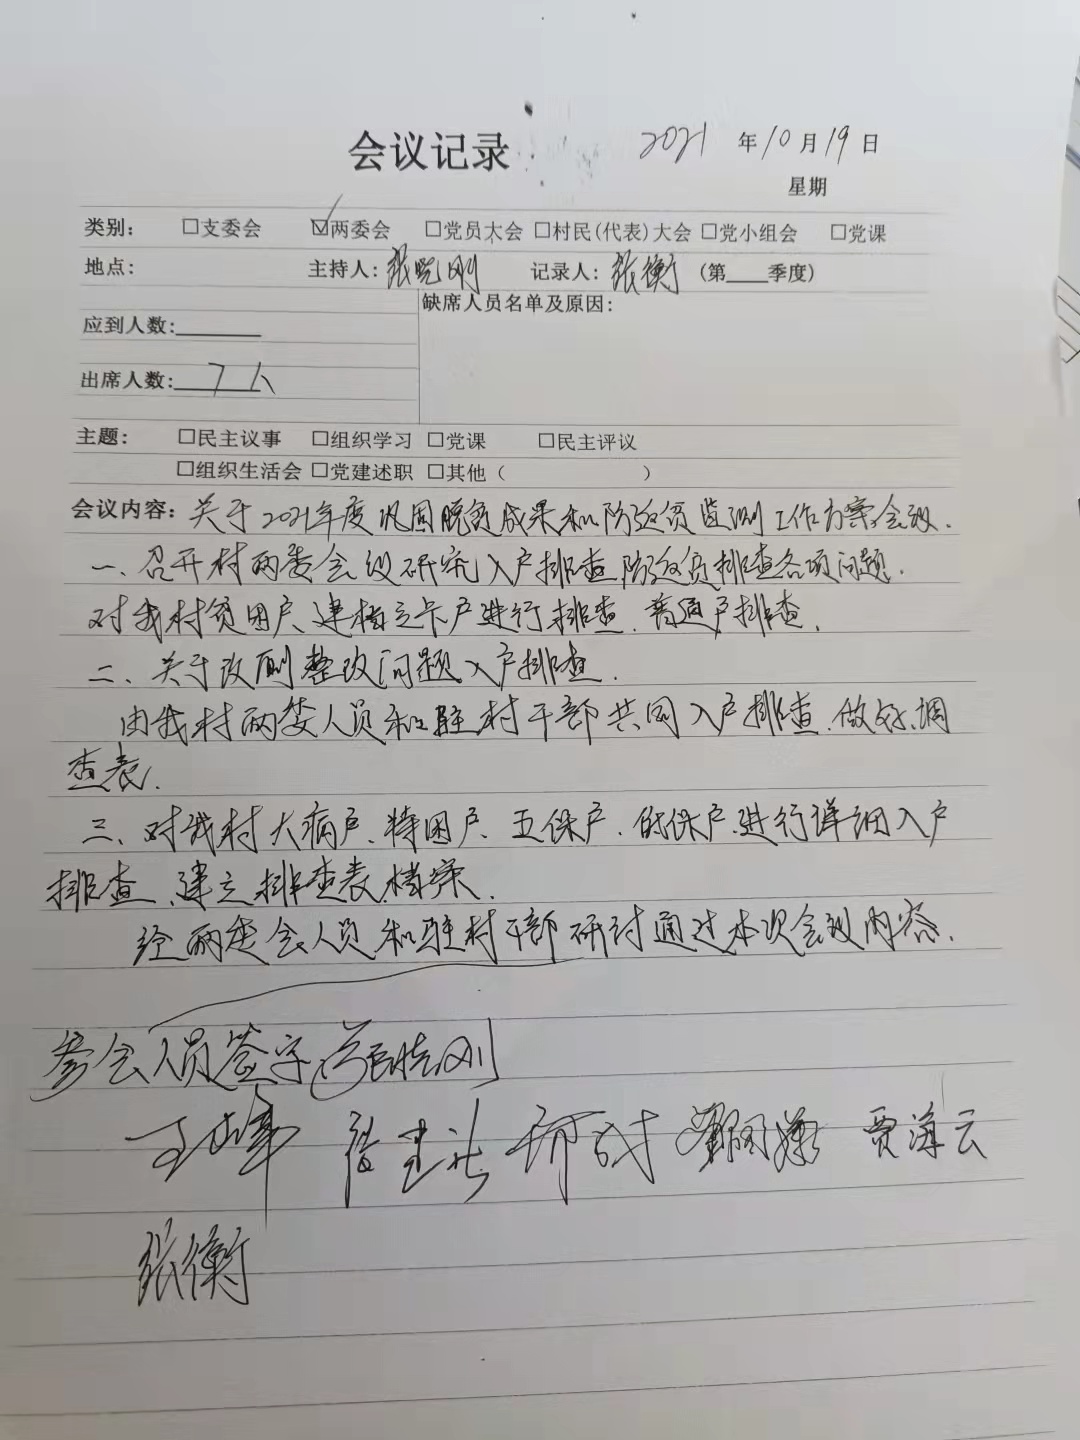 会议记录 2021年10月19日
星期
类别： □支委会 ☑两委会 □党员大会 □村民(代表)大会 □党小组会 □党课
地点： 主持人：张晓刚 记录人：张衡 (第___季度)
应到人数： 缺席人员名单及原因：
出席人数：7人
主题： □民主议事 □组织学习 □党课 □民主评议
□组织生活会 □党建述职 □其他（ ）
会议内容：关于2021年度巩固脱贫成果和防返贫监测工作方案会议.
一、召开村两委会议研究入户排查防返贫排查各项问题.
对我村贫困户、建档立卡户进行排查.普通户排查.
二、关于改厕整改问题入户排查.
由我村两委人员和驻村干部共同入户排查.做好调
查表.
三、对我村大病户、特困户、五保户、低保户、进行详细入户
排查、建立排查表档案.
经两委会人员和驻村干部研讨通过本次会议内容.
参会人员签字：张晓刚
贾海云
张衡